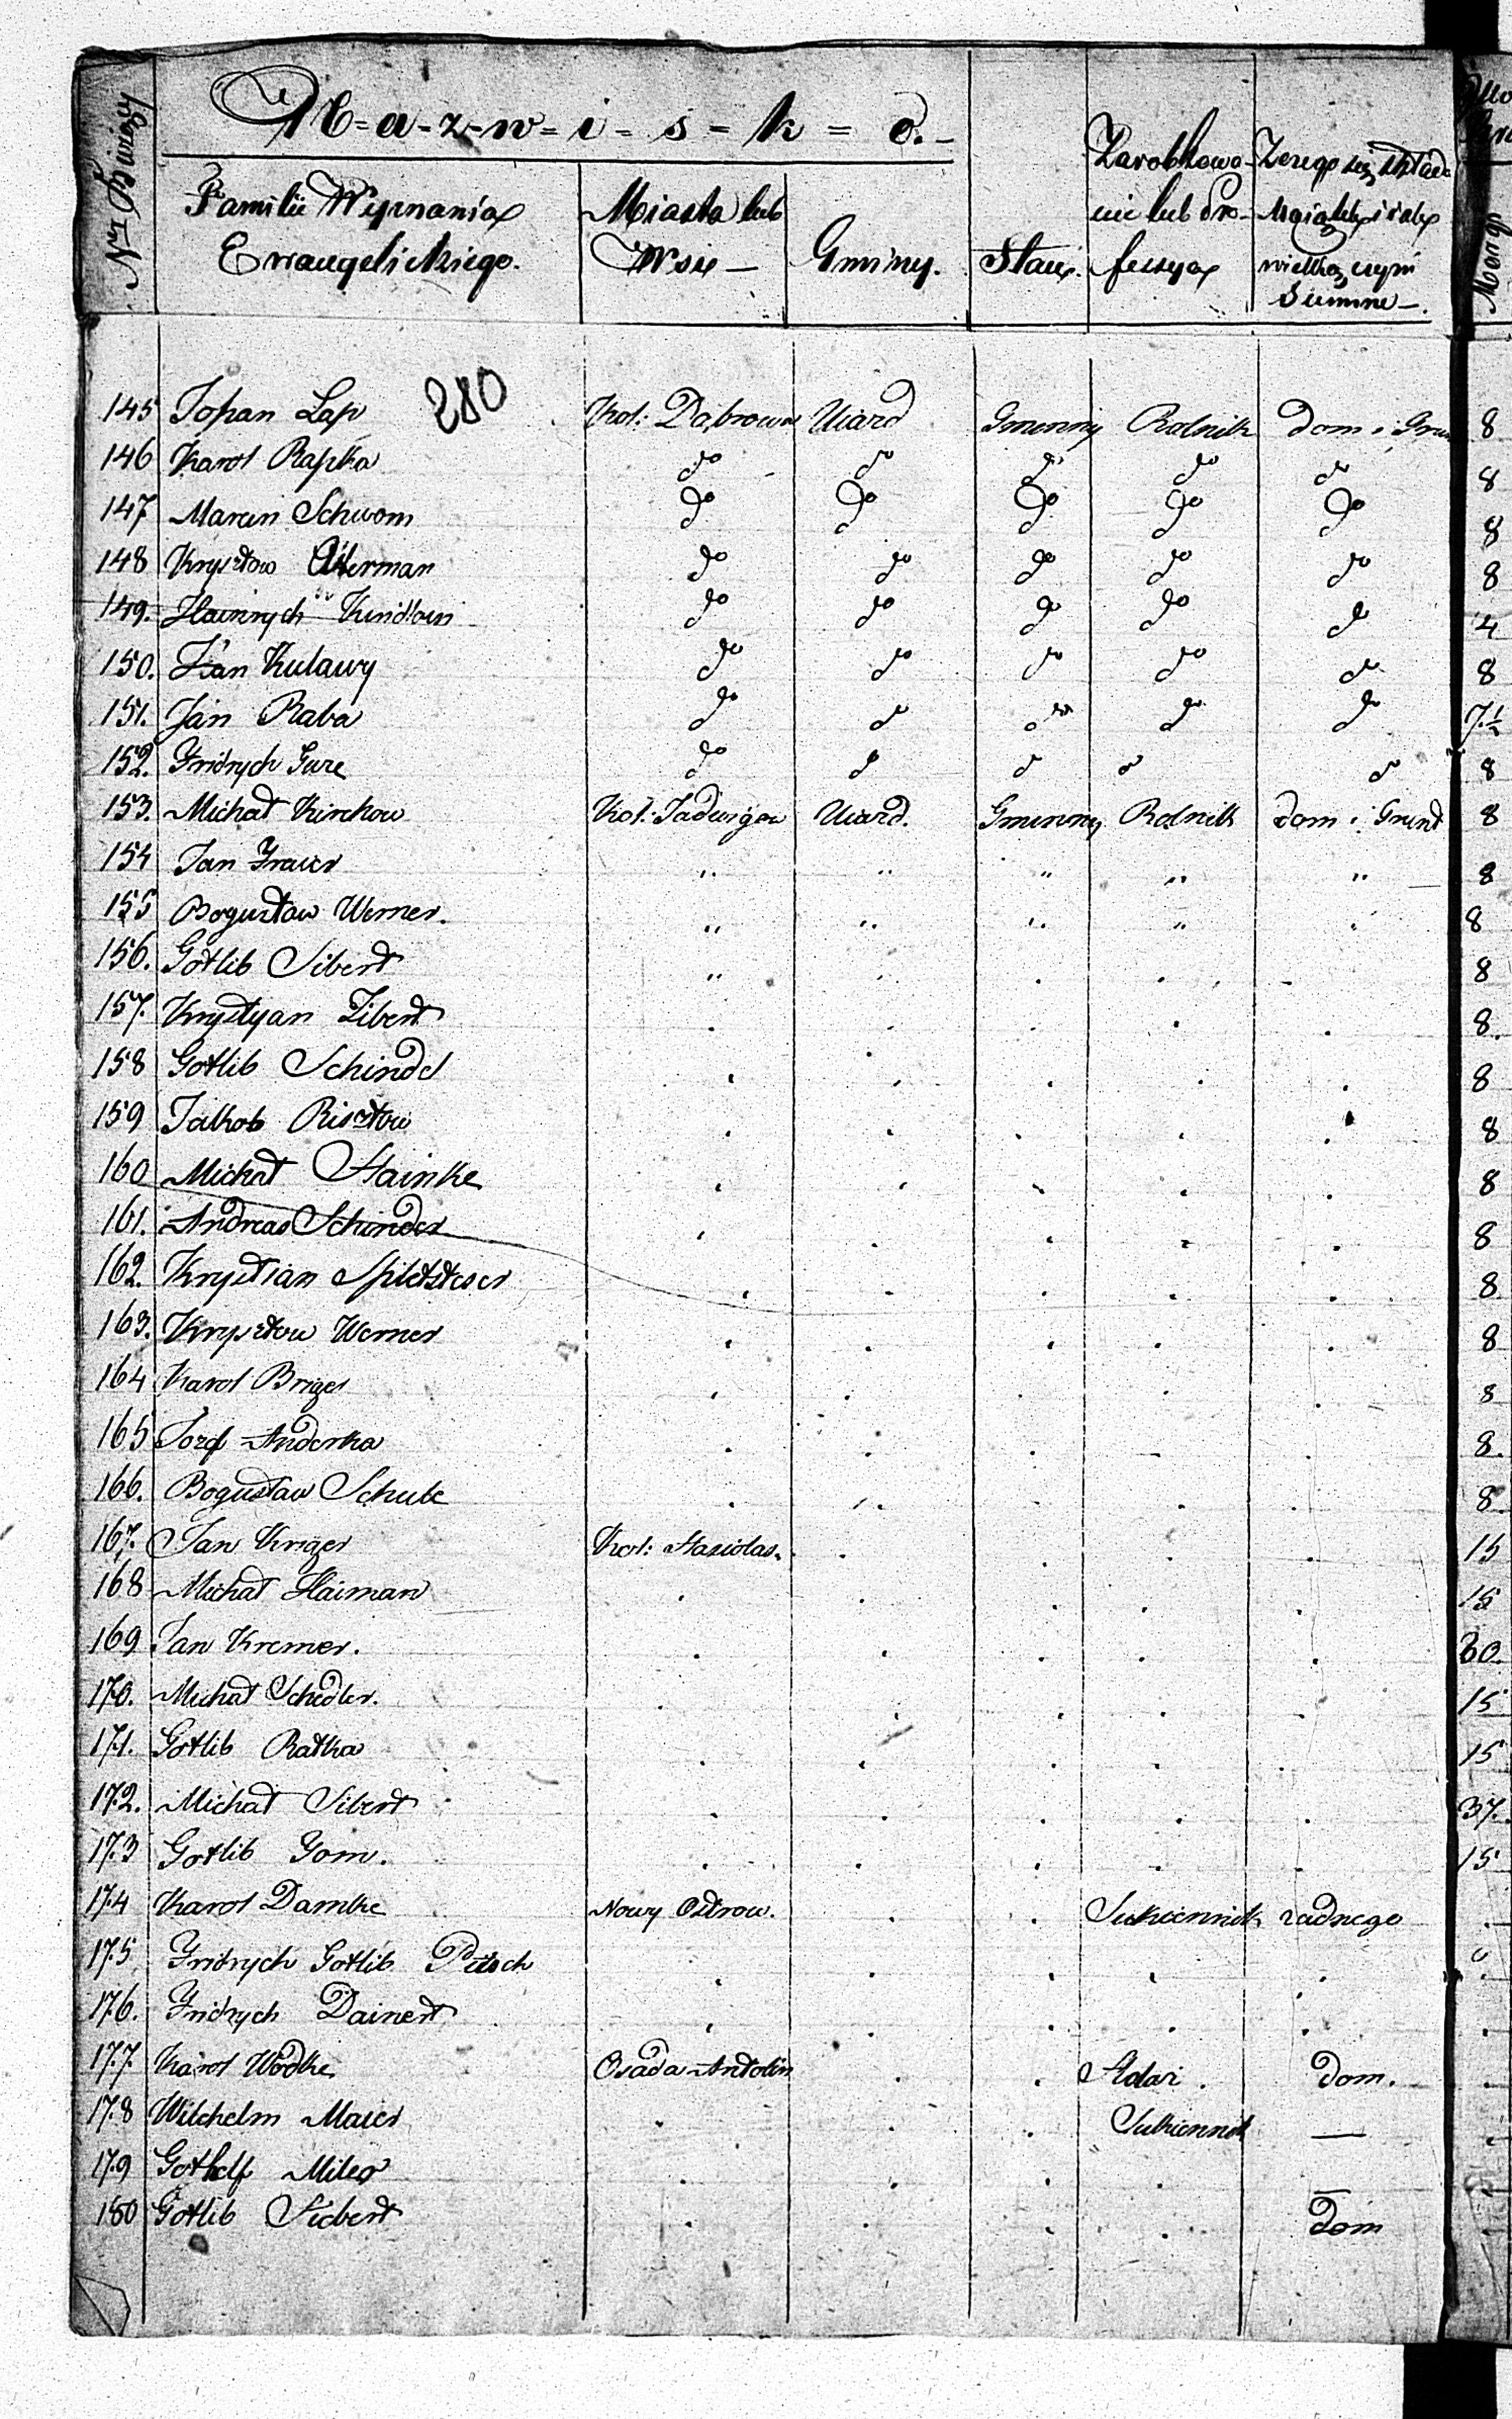 N-a-z-w-i-s-k-o.
Familii Wyznania
Ewangelickiego.
Miasta lub
Wsie
Gminy.
Stan.
Zarobkowa-
nie lub Pro-
fessya
Summe
280
145 Johan Lap Kol: Dąbrowa Uiazd Gminny Rolnik Dom i Grun 8
146 Karol Rapka do do do do do 8
147 Marcin Schwom do do do do do 8
148 Krysztow do do do do do 8
149. Hainrych do do do do do 4
150. Jan Kulawy do do do do do 8
151. Jan Raba do do do do do 7½
152. Fridrych Gure do do do do do 8
153. Michał Kirchow Kol: Jadwigow Uiazd. Gminny Rolnik Dom i Grunt 8
154 Jan Frauer " " " " " 8
155 Bogusław Werner. " " " " " 8
156. Gotlib Sibert " 8
157. Krystyan Zibert 8.
158 Gotlib Schindel 8
159 Jakob Risztow 8
160 Michał Hainke 8
161. Andreas Schindel 8
162. Krystian Spletsteser 8
163. Krysztow Werner 8
164 Karol Briger 8
165 Jozef Anderka 8.
166. Bogusław Schulc 8.
167. Jan Kriger Kol: 15
168 Michał Haiman 15
169 Jan Kremer. 30.
170. Michał Schedler. 15
171. Gotlib Ratka 15
172. Michał Sibert 37.
173 Gotlib Jom. 15
174 Karol Damke Nowy Ostrow. Sukiennik żadnego
175. Fridrych Gotlib Petsch
176. Fridrych Dainert
177. Karol Wodke Osada Antolin dom.
178 Wilchelm Maier Sukiennik —
179 Gothelf Miler —
180 Gotlib Siebert Dom